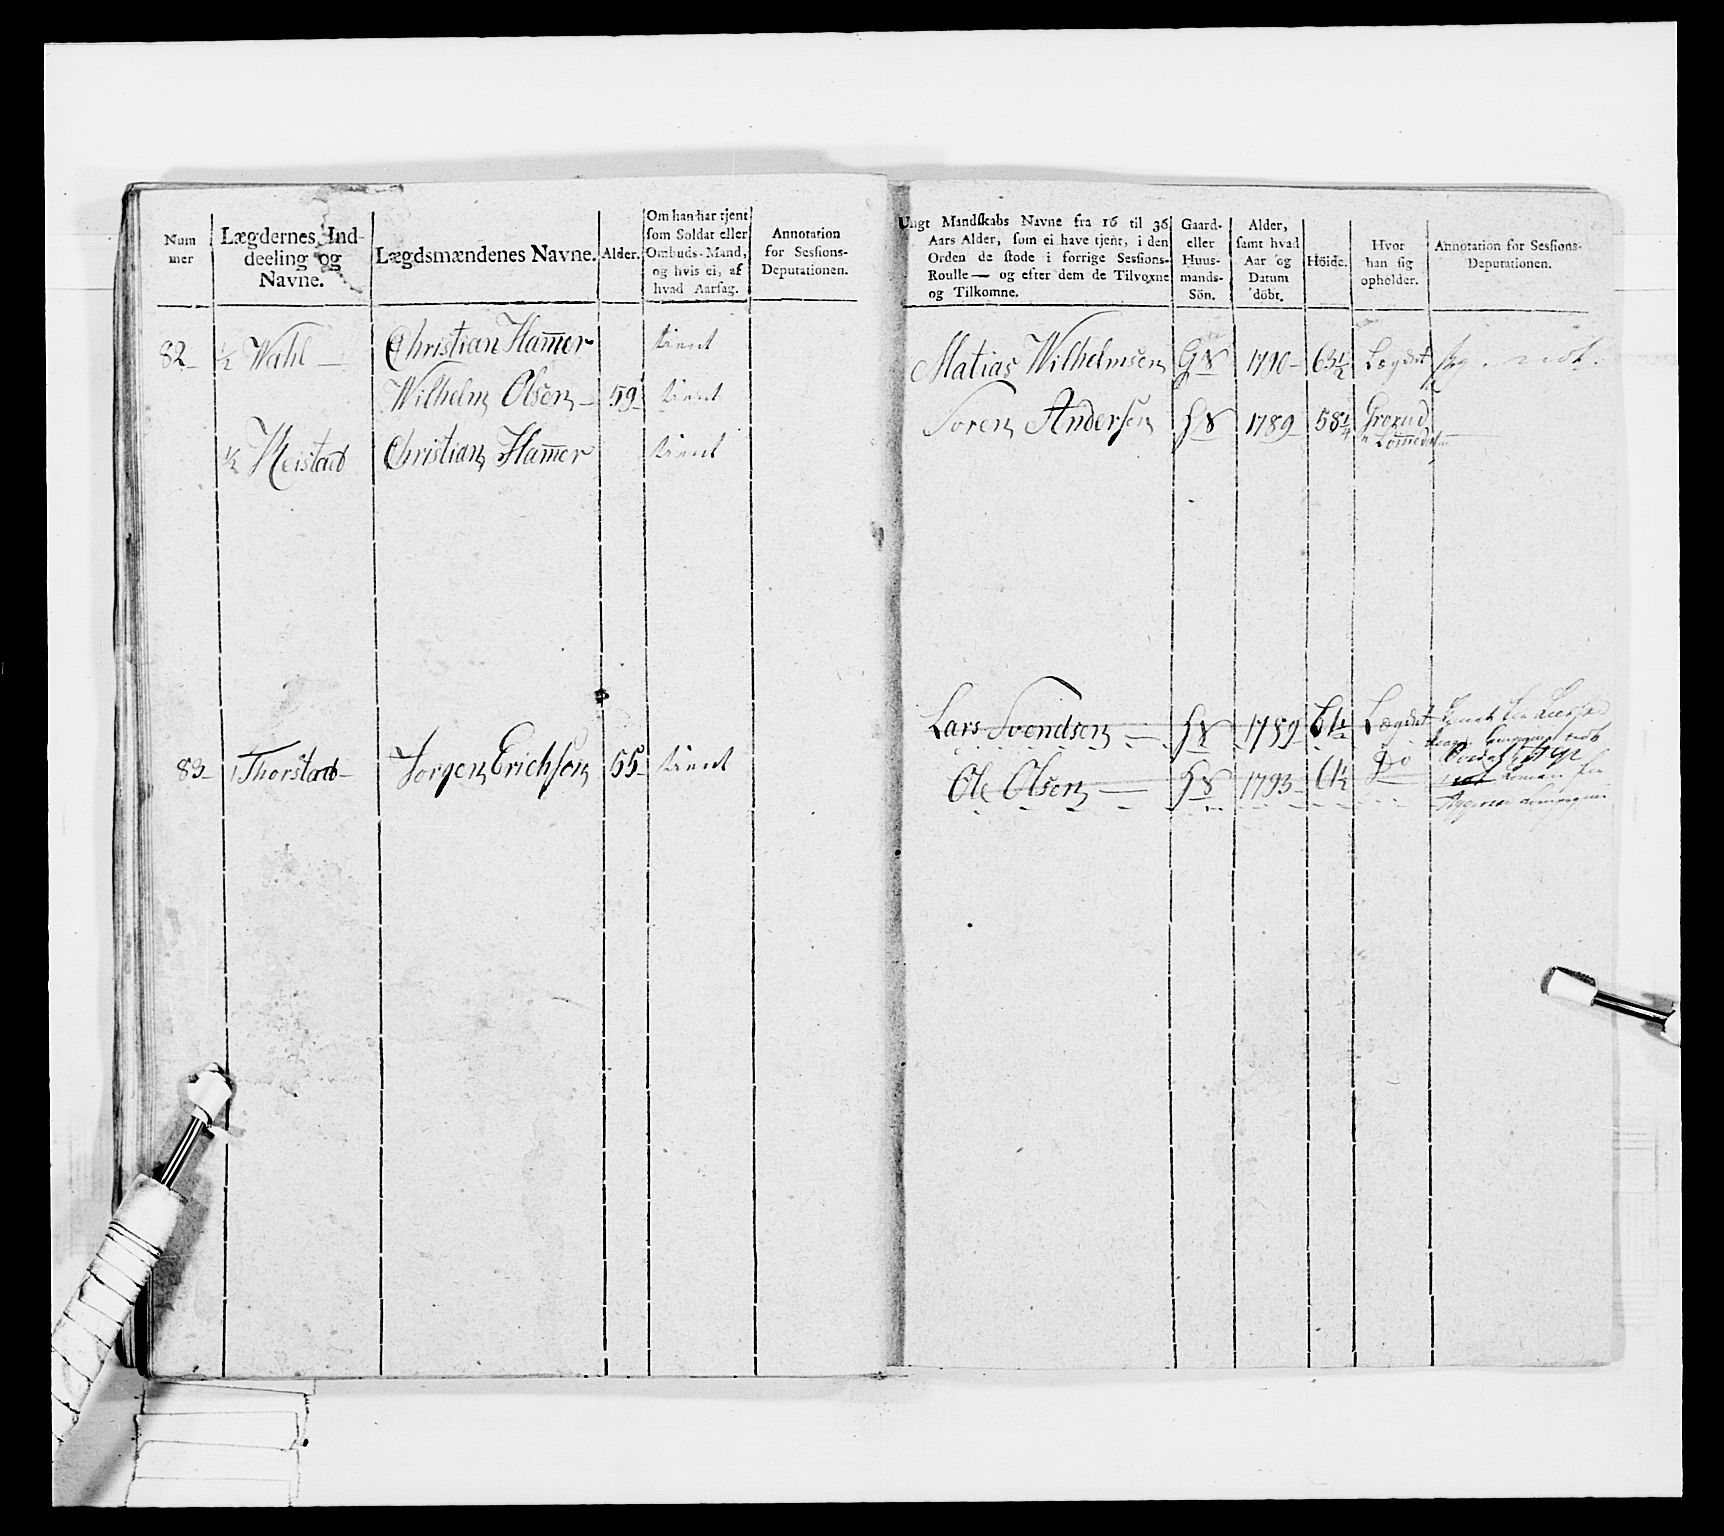 Num
mer
Lægdernes Ind-
deeling og
Navne.
Lægdsmændenes Navne.
Alder.
Om han har tjent
som Soldat eller
Ombuds-Mand,
og hvis ei, af
hvad Aarsag.
Annotation
for Sessions-
Deputationen.
82 ½ Wahl Christian Ham̅er tient
Wilhelm Olsen 59 tient
½ Meistad Christian Ham̅er tient
83 1 Thorstad Jorgen Erichsen 55 tient
Ungt Mandskabs Navne fra 16 til 36
Aars Alder, som ei have tjent, i den
Orden de stode i forrige Sessions-
Roulle — og efter dem de Tilvoxne
og Tilkomne.
Gaard-
eller
Huus-
mands-
Sön.
Alder,
samt hvad
Aar og
Datum
döbt.
Höide.
Hvor
han sig
opholder.
Annotation for Sessions-
Deputationen.
Matias Wilhelmsen GS 1790 63½ Lægdet
Soren Andersen HS 1789 58¼
Lars Svendsen HS 1789 61½ Lægdet
Ole Olsen HS 1793 61½ Do